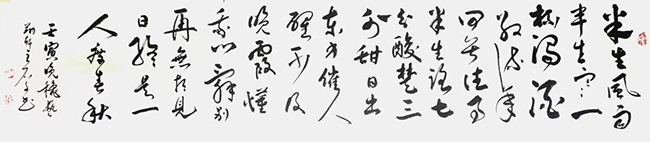 半生风雨
半生寒一
杯浊酒
敬流年
回首往事
半生路七
分酸楚三
分甜日出
东方催人
醒不及
晚霞懂
我心辞别
再无相见
日终是一
人度春秋
壬寅